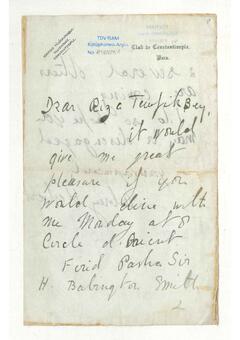 TDV İSAM
Kütüphanesi Arşivi
No
Club de Constantinople,
Pera.
Dear Riza Tewfik Bey,
it would
give me great
pleasure if you
would dine with
me Monday at 8
Circle d'Orient
Ferid Pasha Sir
H. Babington Smith